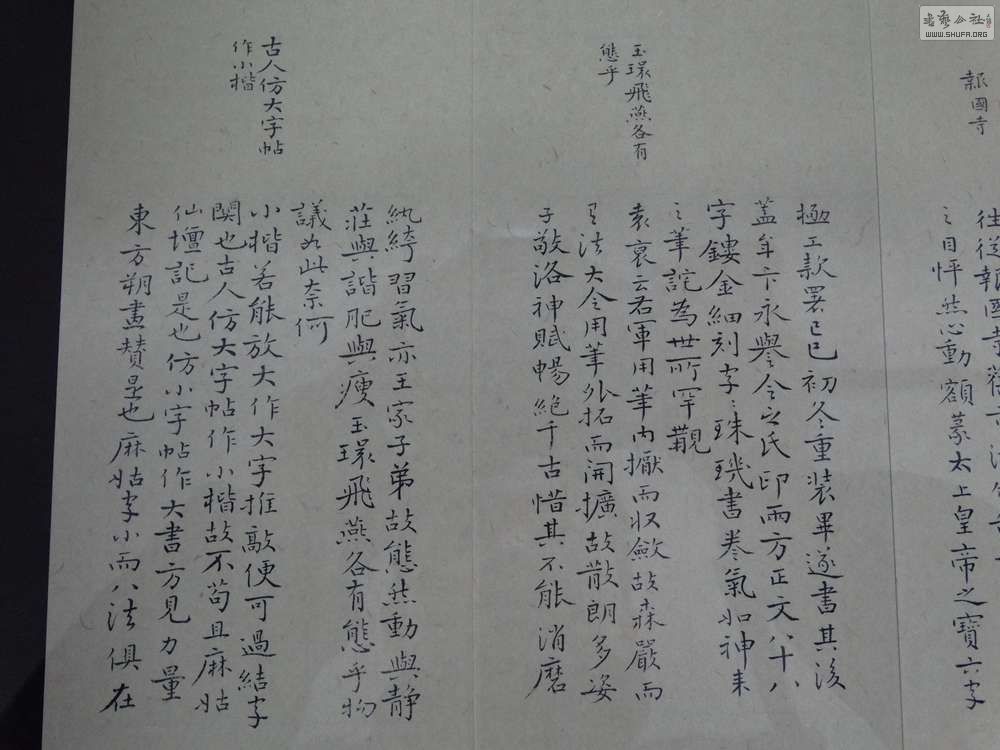 書藝公社
WWW.SHUFA.ORG
報國寺
之目怦然心動額蒙太上皇帝之寶六字
玉環飛燕各有
態乎
極工款署己巳初冬重裝畢遂書其後
蓋年卞永譽令之氏印兩方正文八十八
字鏤金細刻字字珠璣書卷氣如神來
之筆詫為世所罕覯
袁裒云右軍用筆內擫而收斂故森嚴而
有法大令用筆外拓而開擴故散朗多姿
子敬洛神賦暢絕千古惜其不能消磨
古人仿大字帖
作小楷
紈綺習氣亦王家子弟故態然動與靜
莊與諧肥與瘦玉環飛燕各有態乎物
議如此奈何
小楷若能放大作大字推敲便可過結字
關也古人仿大字帖作小楷故不苟且麻姑
仙壇記是也仿小字帖作大書方見力量
東方朔畫贊是也麻姑字小而八法俱在